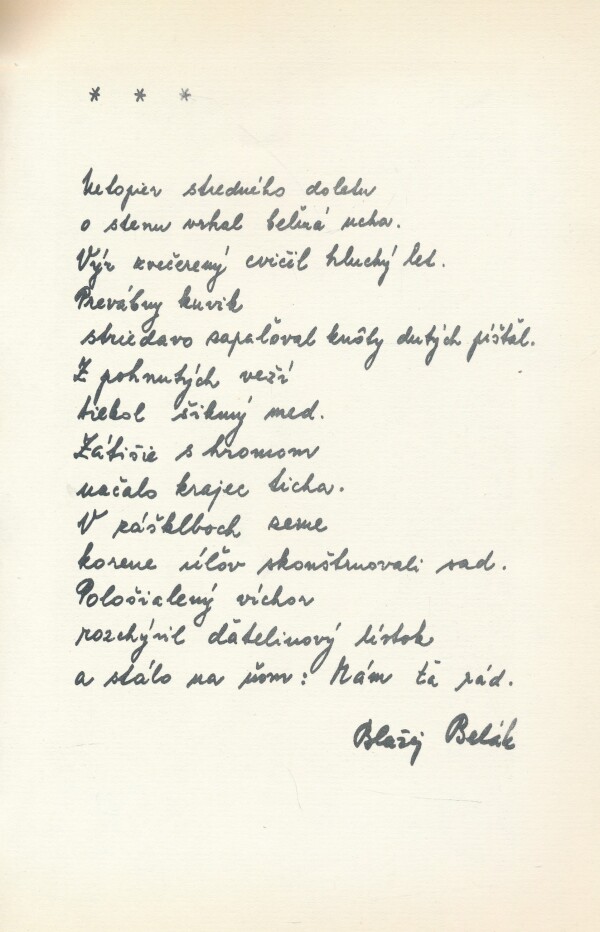 * * *
Netopier stredného doletu
o stenu vrhal belasá ucha.
Výr zvečerený cvičil hluchý let.
Prevábny kuvik
striedavo zapaľoval knôty dutých píšťal.
Z pohnutých veží
tiekol šikmý med.
Zátišie s hromom
načalo krajec ticha.
V zášklboch zeme
korene úľov skonštruovali sad.
Pološialený víchor
rozchýlil ďatelinový lístok
a stálo na ňom: Mám ťa rád.
Blažej Belák